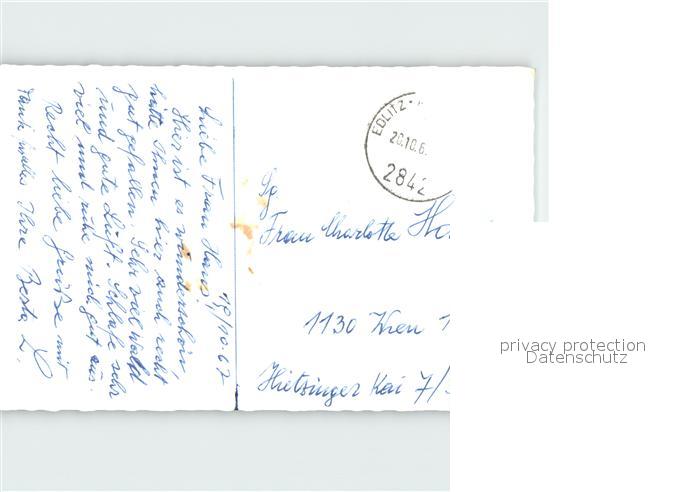 19/10.67
Liebe Frau Hans!
Hier ist es wunderschön,
hätte Ihnen hier auch recht
gut gefallen. Sehr viel Wald
und gute Luft. Schlafe sehr
viel und ruhe mich gut aus.
Recht liebe Grüße mit
Ihre Berta
EDLITZ
20.10.6
2842
Frau Charlotte
1130 Wien
Hietzinger Kai 7/
privacy protection
Datenschutz